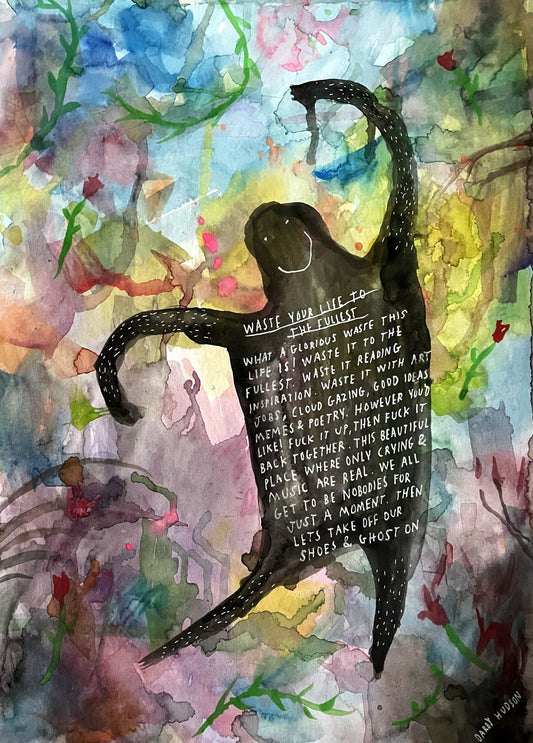 WASTE YOUR LIFE TO
THE FULLEST
WHAT A GLORIOUS WASTE THIS
LIFE IS! WASTE IT TO THE
FULLEST. WASTE IT READING
INSPIRATION. WASTE IT WITH ART
JOBS, CLOUD GAZING, GOOD IDEAS
MEMES & POETRY. HOWEVER YOU'D
LIKE! FUCK IT UP, THEN FUCK IT
BACK TOGETHER. THIS BEAUTIFUL
PLACE WHERE ONLY CRYING &
MUSIC ARE REAL. WE ALL
GET TO BE NOBODIES FOR
JUST A MOMENT. THEN
LETS TAKE OFF OUR
SHOES & GHOST ON
DABY HUDSON